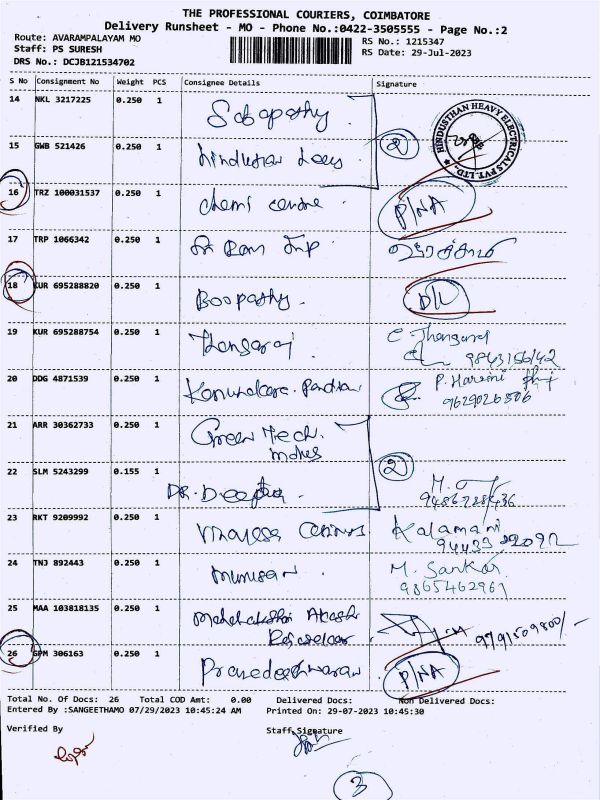 THE PROFESSIONAL COURIERS, COIMBATORE
Delivery Runsheet - MO - Phone No.:0422-3505555 - Page No.:2
Route: AVARAMPALAYAM MO
Staff: PS SURESH
DRS No.: DCJB121534702
RS No.: 1215347
RS Date: 29-Jul-2023
S No Consignment No Weight PCS Consignee Details Signature
14 NKL 3217225 0.250 1 Sabapathy
HINDUSTHAN HEAVY ELECTRICALS PVT. LTD.
15 GWB 521426 0.250 1 2
16 TRZ 100031537 0.250 1 Chemi P/NA
17 TRP 1066342 0.250 1 Sri Ram
18 KUR 695288820 0.250 1 Boopathy. D/L
19 KUR 695288754 0.250 1 Thangaraj C. Thangaraj
9843156142
20 DDG 4871539 0.250 1 P. Harsini
9629026506
21 ARR 30362733 0.250 1 Green Tech.
2
22 SLM 5243299 0.155 1 DR. Deepthi M.
9486728436
23 RKT 9209992 0.250 1 Kalamani
24 TNJ 892443 0.250 1 Murugan M. Sankar
9865462961
25 MAA 103818135 0.250 1 9791509800/-
26 GPM 306163 0.250 1 P/NA
Total No. Of Docs: 26 Total COD Amt: 0.00 Delivered Docs: Non Delivered Docs:
Entered By :SANGEETHAMO 07/29/2023 10:45:24 AM Printed On: 29-07-2023 10:45:30
Verified By Staff Signature
3